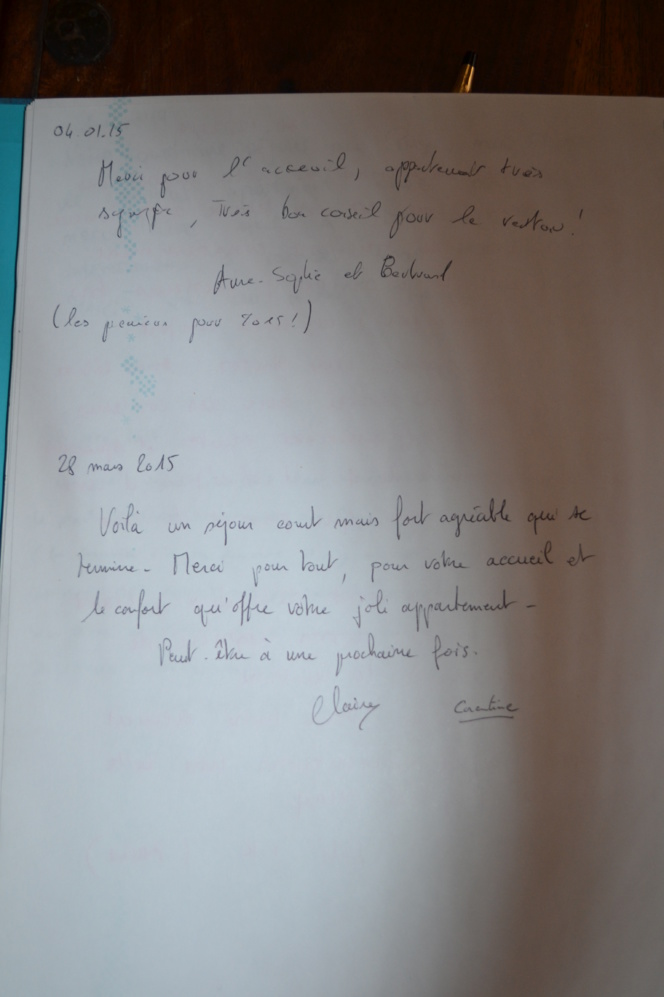 04.01.15
Merci pour l'acceuil, appartement très
sympa, très bon conseil pour le restau!
Anne-Sophie et Bertrand
(les premiers pour 2015!)
28 mars 2015
Voilà un séjour court mais fort agréable qui se
termine - Merci pour tout, pour votre accueil et
le confort qu'offre votre joli appartement -
Peut-être à une prochaine fois.
Claire